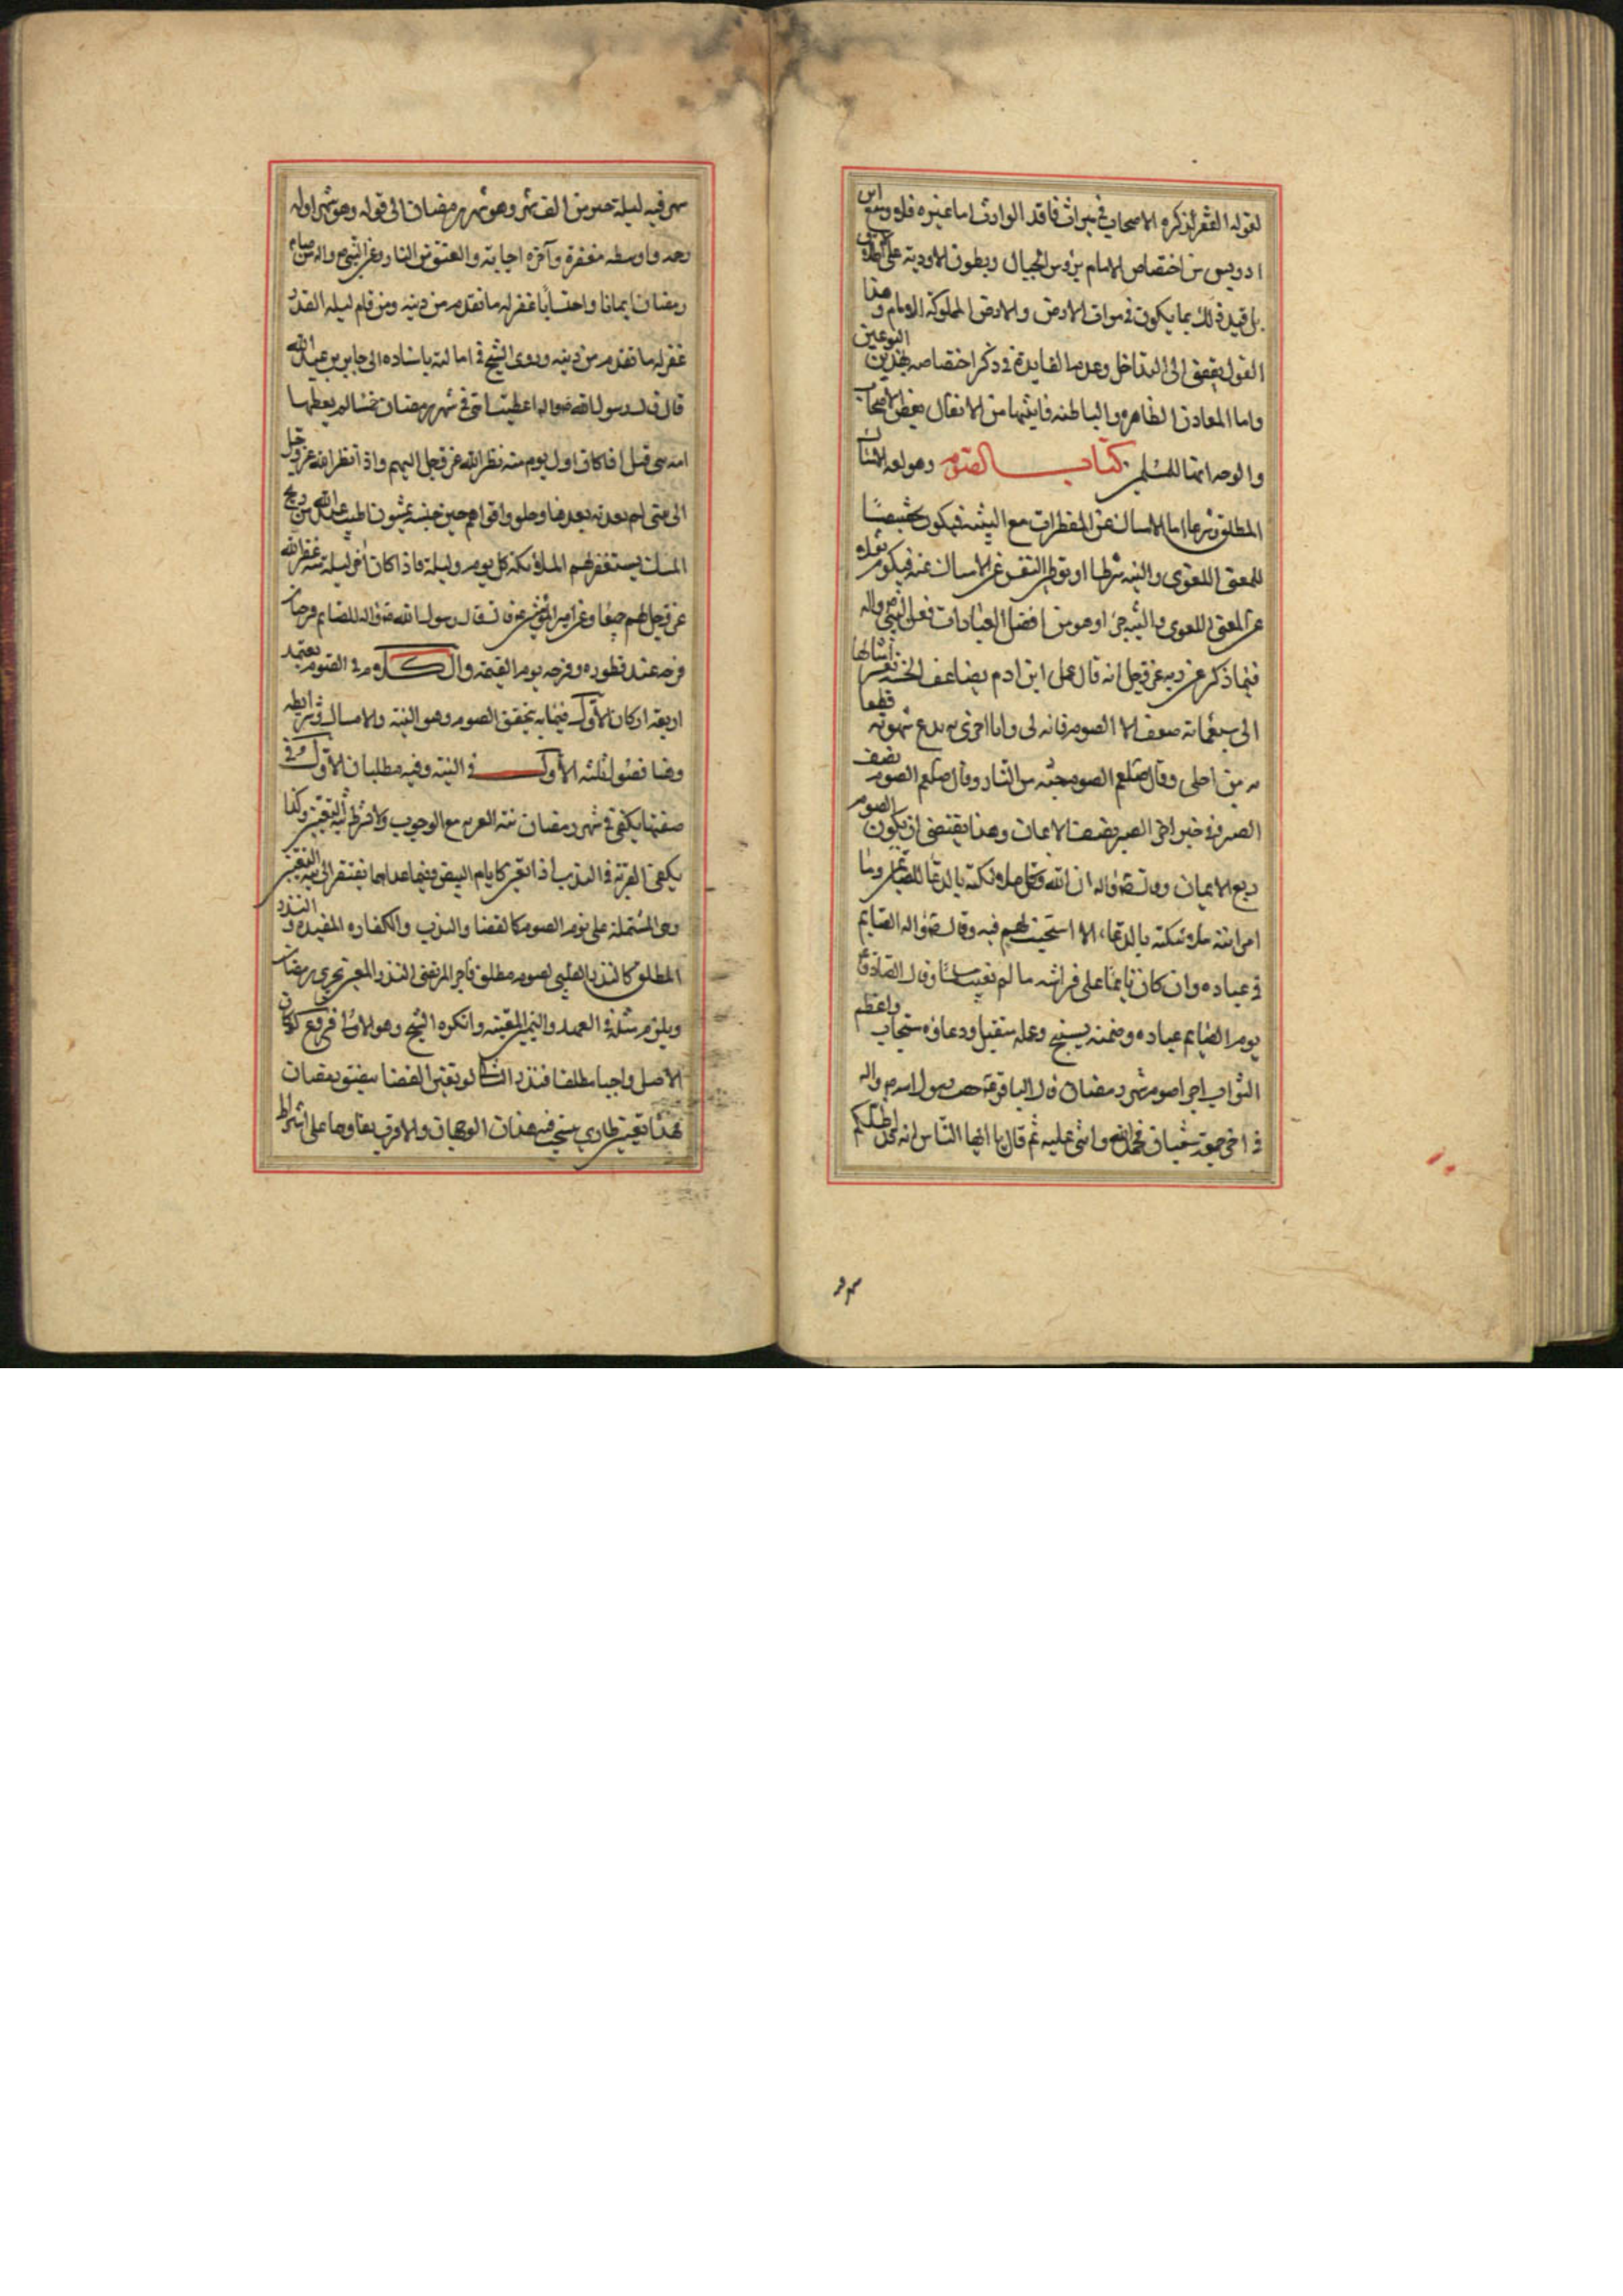 لعموم الفقر الذكره الاصحاب في ميراث فاقد الوارث اما غيره فلا ومنع ابن
ادريس من اختصاص الامام برؤس الجبال وبطون الاودية على الاطلاق
بل قيد ذلك بما يكون في موات الارض والارض المملوكة للامام و هذا
القول يفضى الى التداخل وعدم الفايدة في ذكر اختصاصه بهذين النوعين
واما المعادن الظاهره والباطنه فاثبتها من الانفال بعض الاصحاب
والوجه انها للمسلمين كتاب الصوم وهو لغه الامساك
المطلق وشرعا اما الامساك عن المفطرات مع النية فيكون تخصيصا
للمعنى اللغوى والنيه شرطها او توطين النفس على الامساك عنه فيكون نقلا
عن المعنى اللغوى والنيه جزءا وهو من افضل العبادات فعن النبي ص واله
فيما ذكر عن ربه عز وجل انه قال عمل ابن ادم يضاعف الحسنه بعشر امثالها
الى سبعماته ضعف الا الصوم فانه لى وانا اجزى به يدع شهوته
من اجلى وقال صلعم الصوم جنه من النار وقال صلعم الصوم نصف
الصبر وفي خبر اخر الصبر نصف الايمان وهذا يقتضى ان يكون الصوم
ربع الايمان وقال ص واله ان الله وكل ملائكته بالدعا للصائمين وما
امر الله ملائكته بالدعا، الا استجيب لهم فيه وقال ص واله الصايم
في عباده وان كان نايما على فراشه ما لم يغتب مسلما وقال الصادق ع
نوم الصايم عباده وصمته تسبيح وعمله متقبل ودعاؤه مستجاب واعظم
الثواب اجرا صوم شهر رمضان قال الباقر ع خطب رسول الله ص واله
في اخر جمعة شعبان فحمد الله واثنى عليه ثم قال يا ايها الناس انه قد اظلكم
شهر فيه ليلة خير من الف شهر وهو شهر رمضان الى قوله وهو شهر اوله
رحمة واوسطه مغفرة وآخره اجابة والعتق من النار وعن النبي ص واله من صام
رمضان ايمانا واحتسابا غفر له ما تقدم من ذنبه ومن قام ليله القدر
غفر له ما تقدم من ذنبه وروى الشيخ في اماليه باسناده الى جابر بن عبد الله
قال قال رسول الله ص واله اعطيت امتى في شهر رمضان خمسا لم يعطها
امه نبى قبلى اذا كان اول يوم منه نظر الله عز وجل اليهم واذا نظر الله عز وجل
الى شئ لم يعذبه بعدها وخلوف افواههم حين يمسون اطيب عند الله من ريح
المسك يستغفر لهم الملائكه كل يوم وليلة فاذا كان اخر ليلة منه غفر الله
عز وجل لهم جميعا وعن امير المؤمنين ع قال قال رسول الله ص واله للصايم فرحتان
فرحه عند فطوره وفرحه يوم القيمة والكلام في الصوم يعتمد
اربعه اركان الاول فيما به يتحقق الصوم وهو النية والامساك وشرايطه
وهنا فصول ثلثه الاول في النية وفيه مطلبان الاول في
صفتها يكفى في شهر رمضان نية القربه مع الوجوب ولا يشترط نية التعيين وكذا
يكفى القربة في الندب اذا تعين كايام البيض وفيما عداهما يفتقر الى نية التعيين
وهى المشتملة على نوع الصوم كالقضا والندب والكفاره المقيده والنذر
المطلق كالنذر الهلبى لصوم مطلق فاجرى المرتضى النذر المعين مجرى رمضان
ويلزم مثله في العهد واليمين المعينة وانكره الشيخ وهو الاولى فروع لو كان
الاصل واجبا مطلقا فنذر الشا لو تعين القضا بضيق رمضان
فهذا تعيين طارئ يتجه فيه هذان الوجهان والاقرب بقاؤهما على اشتراط